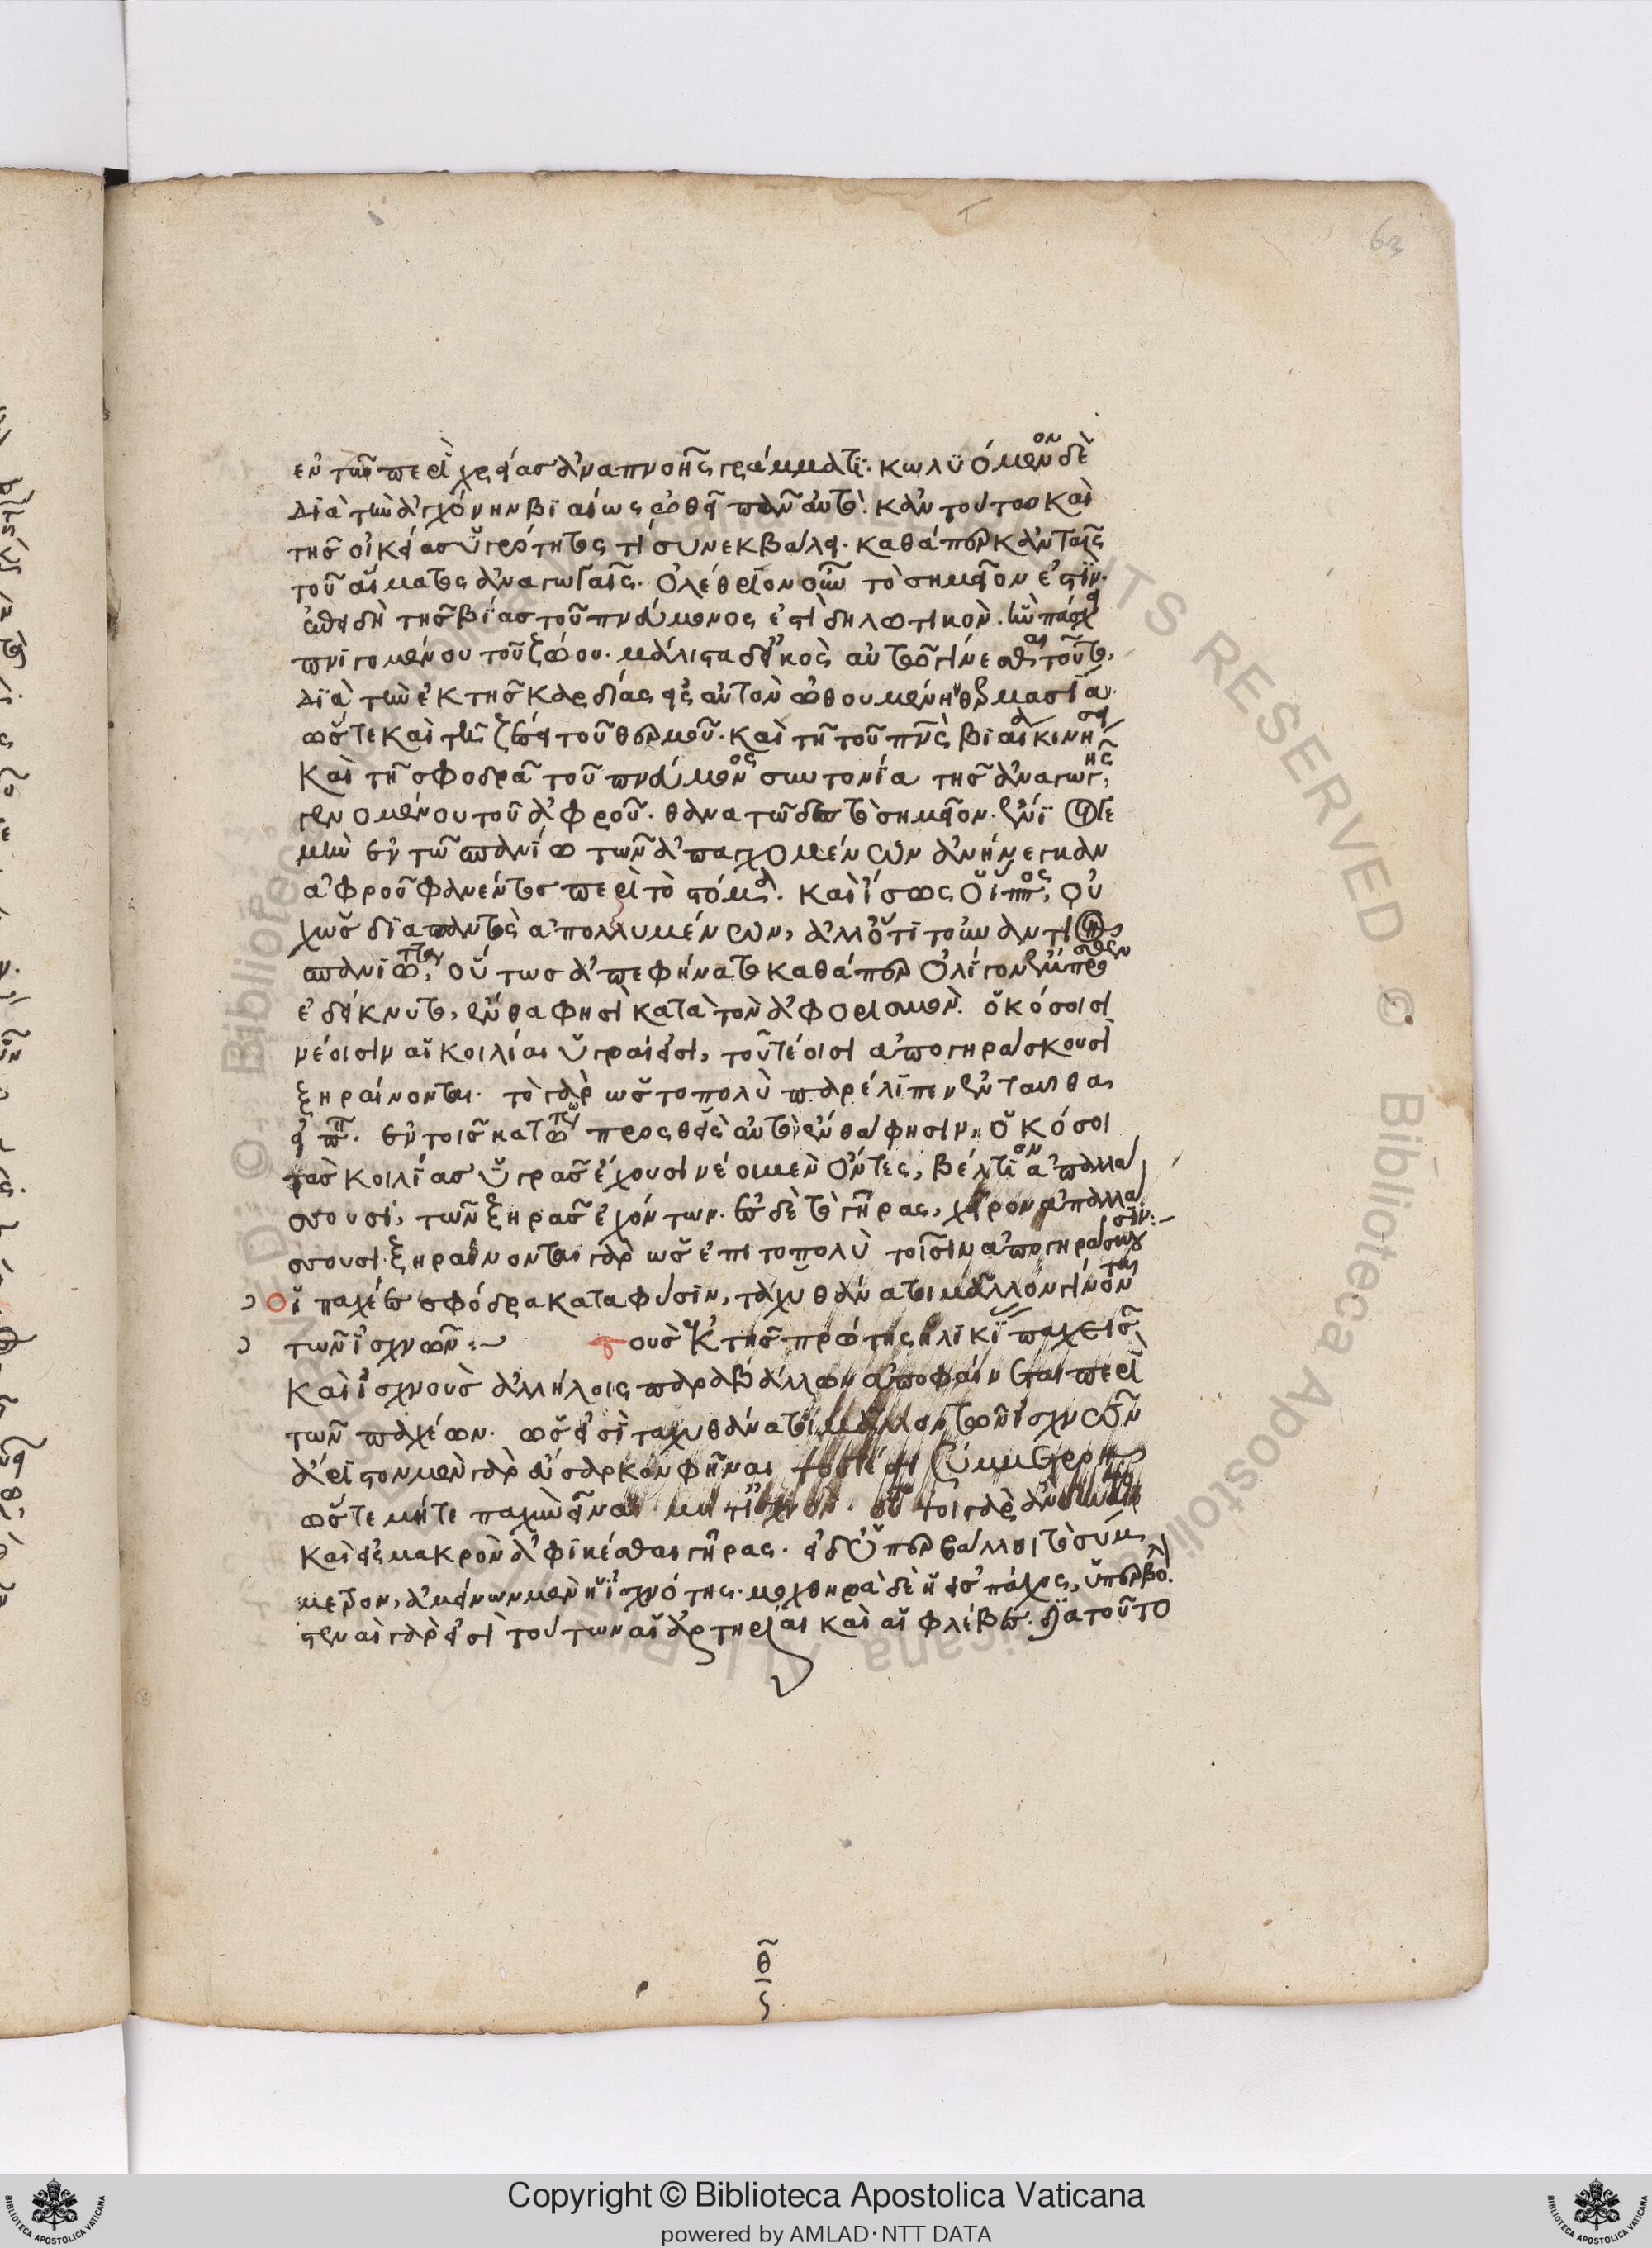 63
ἐν τῶ περὶ χρείας ἀναπνοῆς γράμματι. κωλυόμενον δὲ
διὰ τὴν ἀγχόνην βιαίως ὠθεῖ πᾶν αὐτό. κἀν τούτω καὶ
τῆς οἰκείας ὑγρότητός τι συνεκβάλει. καθάπερ κἀν ταῖς
τοῦ αἵματος ἀναγωγαῖς. ὀλέθριον οὖν τὸ σημεῖον ἐστίν.
ἐπειδὴ τῆς βίας τοῦ πνεύμονος ἐστὶ δηλωτικὸν. ἣν πάσχει
πνιγομένου τοῦ ζώου. μάλιστα δ' εἰκὸς αὐτῶ γίνεσθαι τοῦτο,
διὰ τὴν ἐκ τῆς καρδίας εἰς αὐτὸν ὠθουμένην θερμασίαν
ὥστε καὶ τῆ ζέσει τοῦ θερμοῦ. καὶ τῆ τοῦ πνς βιαία κινήσει
καὶ τῆ σφοδρᾶ τοῦ πνεύμονος συντονία τῆς ἀναγωγῆς,
γενομένου τοῦ ἀφροῦ. θανατῶδες τὸ σημεῖον. ἔνιοί τε
μὴν ἐν τῶ σπανίω τῶν ἀπαγχομένων ἀνήνεγκαν
ἀφροῦ φανέντος περὶ τὸ στόμα. καὶ ἴσως ὁ ἱππος, οὐ
χ ὡς διαπαντὸς ἀπολλυμένων, ἀλλ' ὅτι τοὐναντίον
σπανιώτατον, οὕτως ἀπεφήνατο καθάπερ ὀλίγον ἔμπροσθεν
ἐδείκνυτο, ἔνθα φησὶ κατὰ τὸν ἀφορισμὸν. ὁκόσοισι
νέοισιν αἱ κοιλίαι ὑγραί εἰσι, τουτέοισι ἀπογηράσκουσι
ξηραίνονται. τὸ γὰρ ὡς τοπολὺ παρέλιπεν ἐνταῦθα
εἰπ. ἐν τοῖς κατωτέρω προσθεὶς αὐτὸ ἔνθα φησίν. ὁκόσοι
τὰς κοιλίας ὑγρὰς ἔχουσι νέοι μὲν ὄντες, βέλτιον ἀπαλλά
σσουσι, τῶν ξηρὰς ἐχόντων. ἐς δὲ τὸ γῆρας, χεῖρον ἀπαλλά
σσουσι. ξηραίνονται γὰρ ὡς ἐπιτοπολὺ τοῖσιν ἀπογηράσκουσιν:
οἱ παχέες σφόδρα κατα φύσιν, ταχυθάνατοι μᾶλλον γίνονται
τῶν ἰσχνῶν:
τοὺς ἐκ τῆς πρώτης ἡλικί παχεῖς
καὶ ἰσχνοὺς ἀλλήλοις παραβάλλων ἀποφαίνεται περὶ
τῶν παχέων. ὡς εἰσὶ ταχυθάνατοι μᾶλλον τῶν ἰσχνῶν
ἄριστον μὲν γὰρ εὔσαρκον φῆναι
ὥστε μήτε παχὺν εἶναι μήτ' ἰσχνόν. οὗτοι γὰρ
καὶ εἰς μακρὸν ἀφικέσθαι γῆρας. εἰ δ' ὑπερβάλλοι τὸ σύμ
μετρον, ἀμείνων μὲν ἡ ἰσχνότης. μοχθηρὰ δὲ ἡ εἰς πάχος, ὑπερβολ
στεναὶ γὰρ εἰσὶ τούτων αἱ ἀρτηρίαι καὶ αἱ φλέβες. διὰ τοῦτο
θ
ς
Copyright © Biblioteca Apostolica Vaticana
powered by AMLAD·NTT DATA